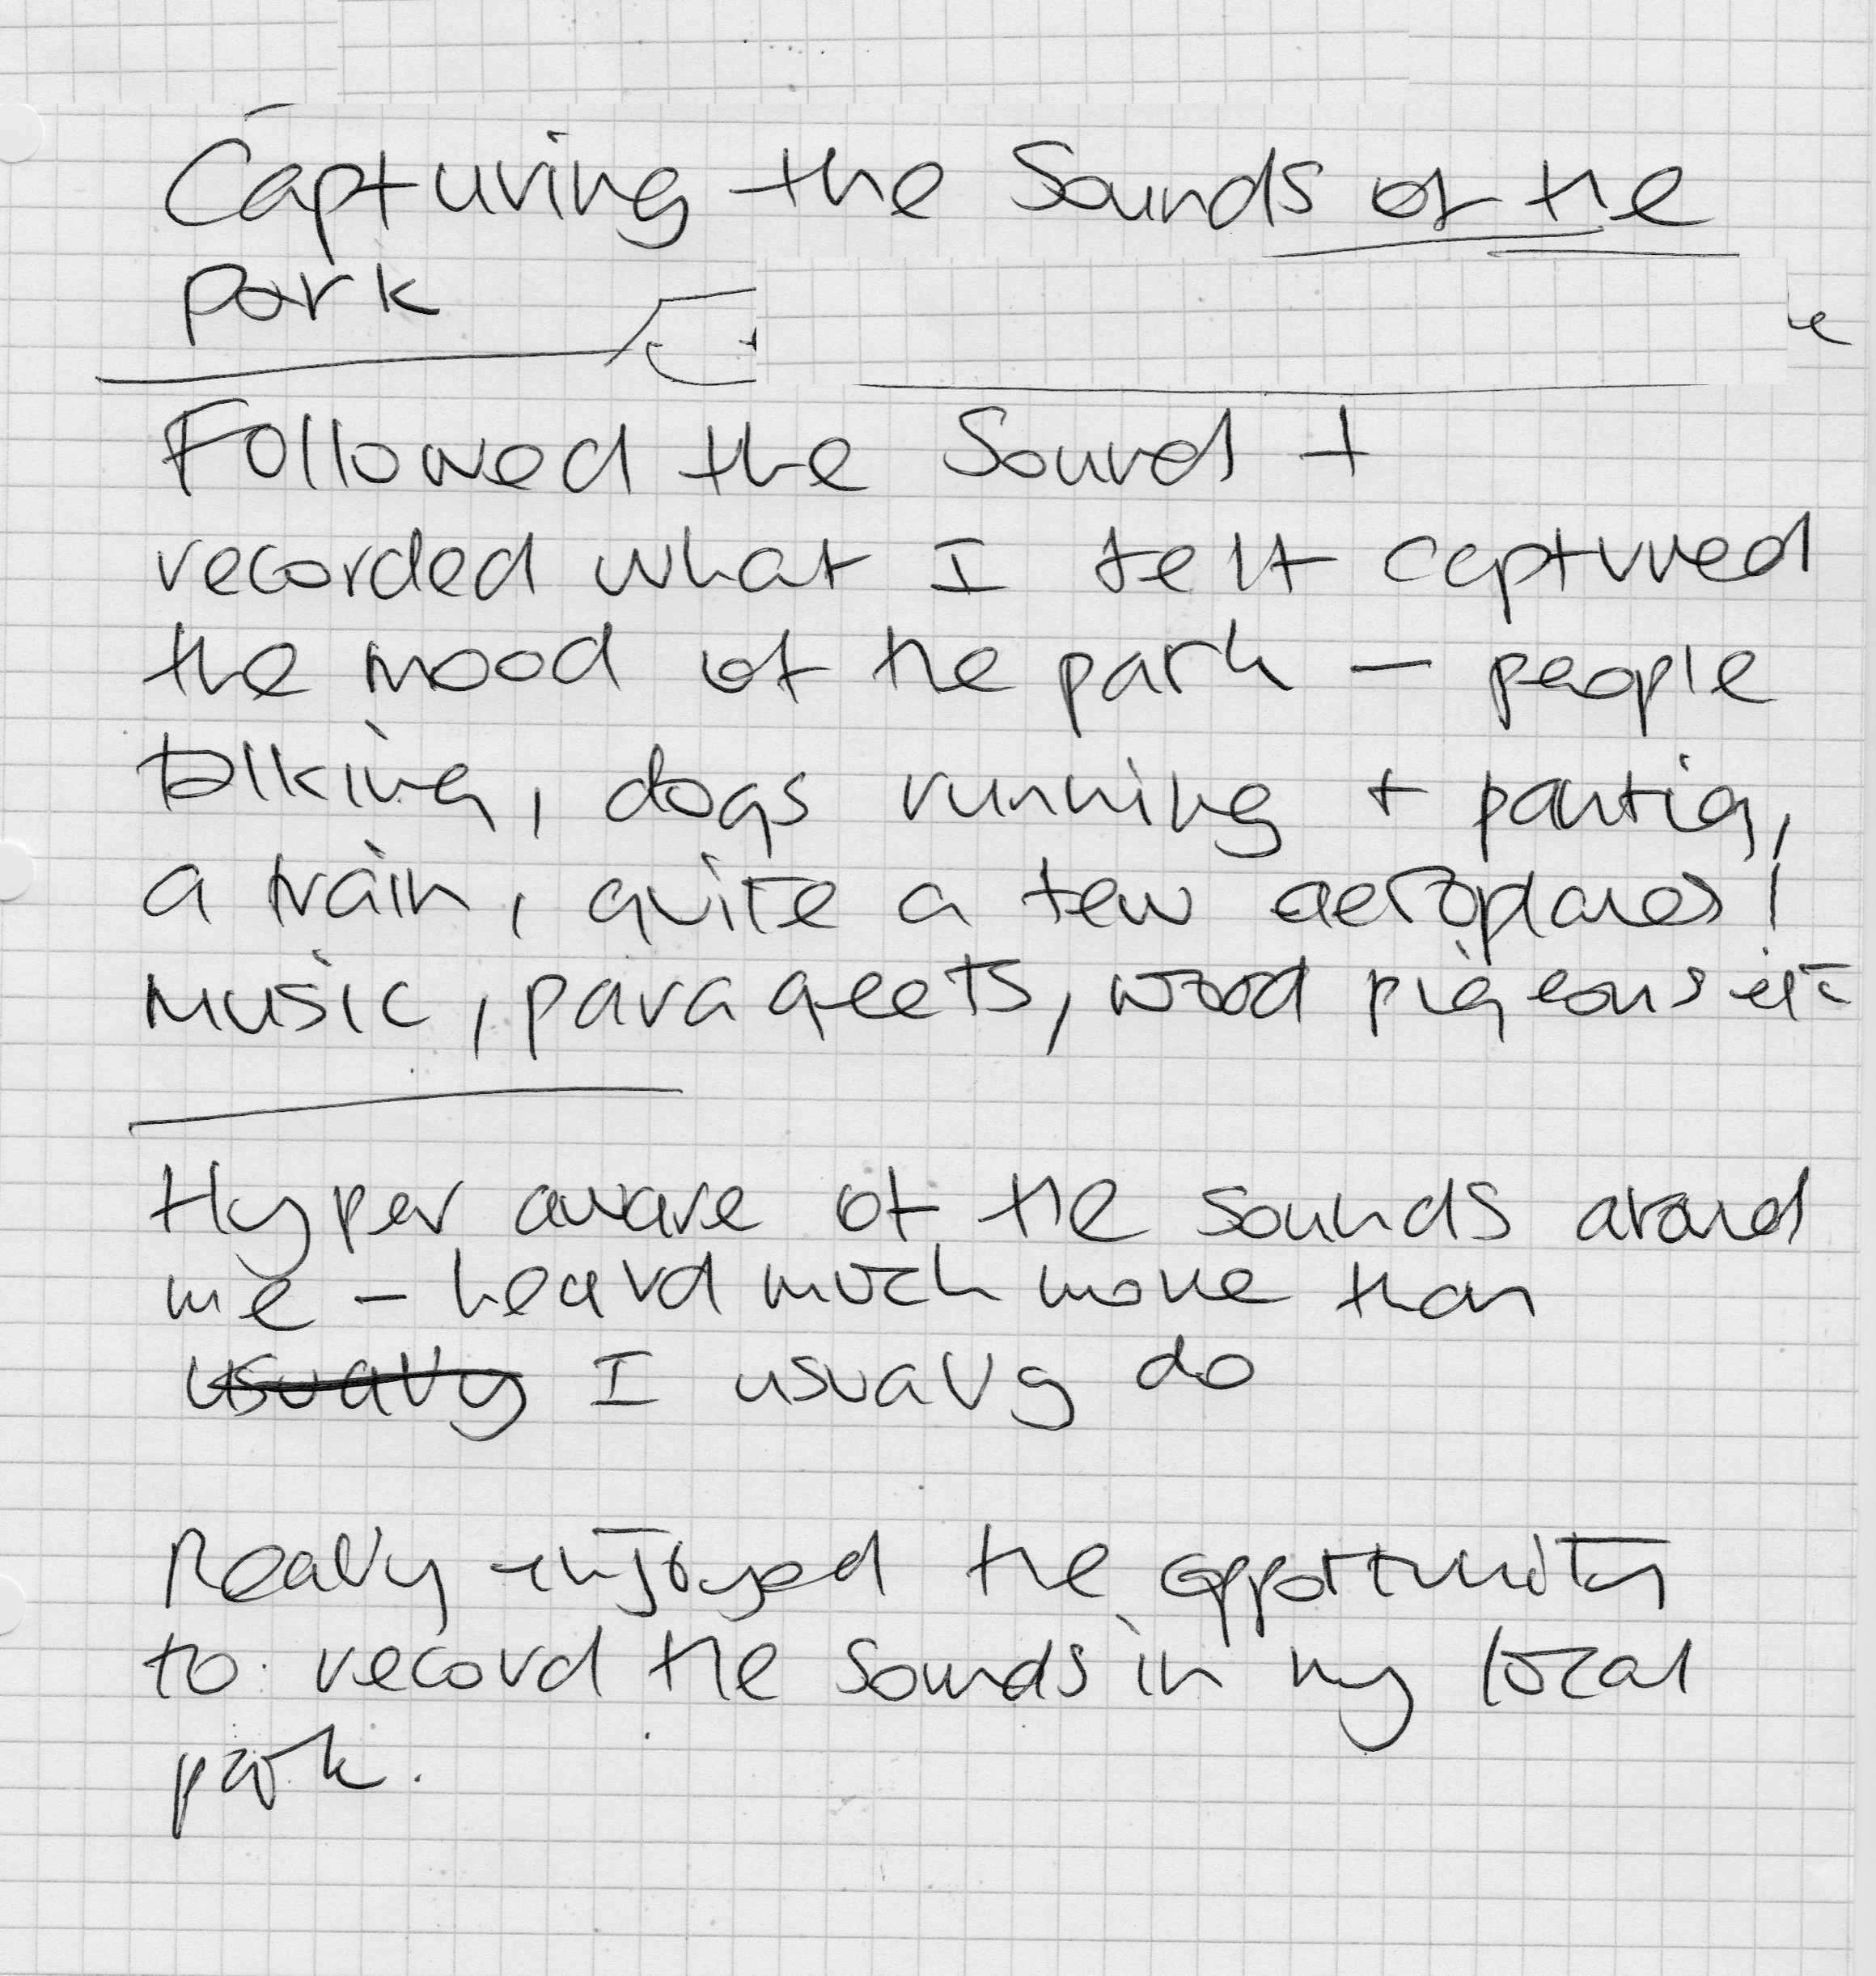 Capturing the Sounds of the
park
Followed the Sound +
recorded what I felt captured
the mood of the park — people
talking, dogs running + panting,
a train, quite a few aeroplanes!
Music, paraqeets, wood pigeons etc
Hyper aware of the sounds around
me - heard much more than
usually I usually do
Really enjoyed the opportunity
to record the sounds in my local
park.